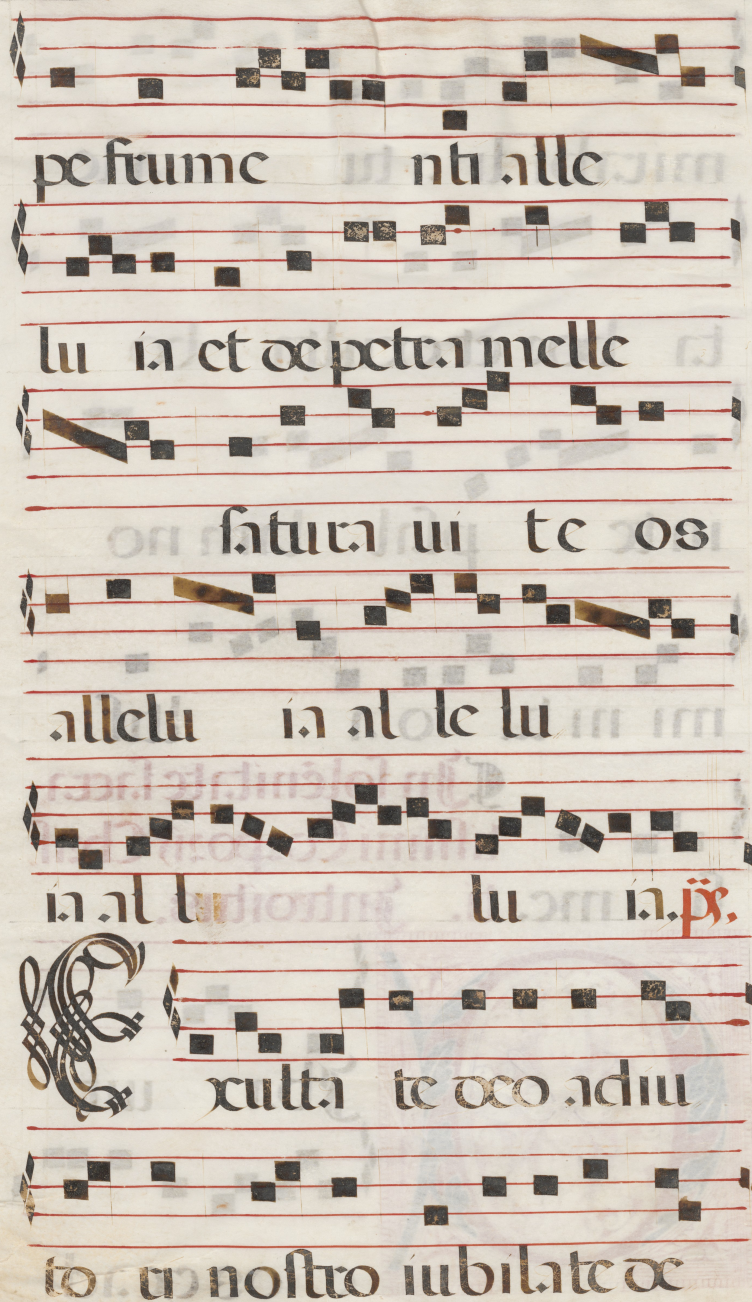 pe frume nti alle
lu ia et de petra melle
satura ui te os
allelu ia al le lu
ia al lu ia. ps.
Exulta te deo adiu
to ri nostro iubilate de